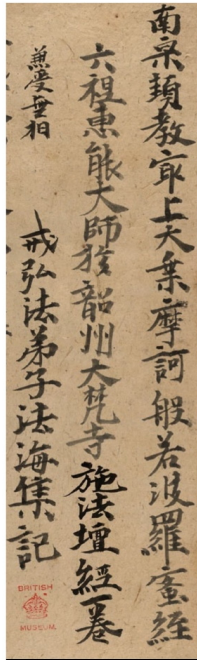 南宗頓教最上大乗摩訶般若波羅蜜経
六祖恵能大師扵韶州大梵寺施法壇経一巻
兼受無相
戒弘法弟子法海集記
BRITISH
MUSEUM